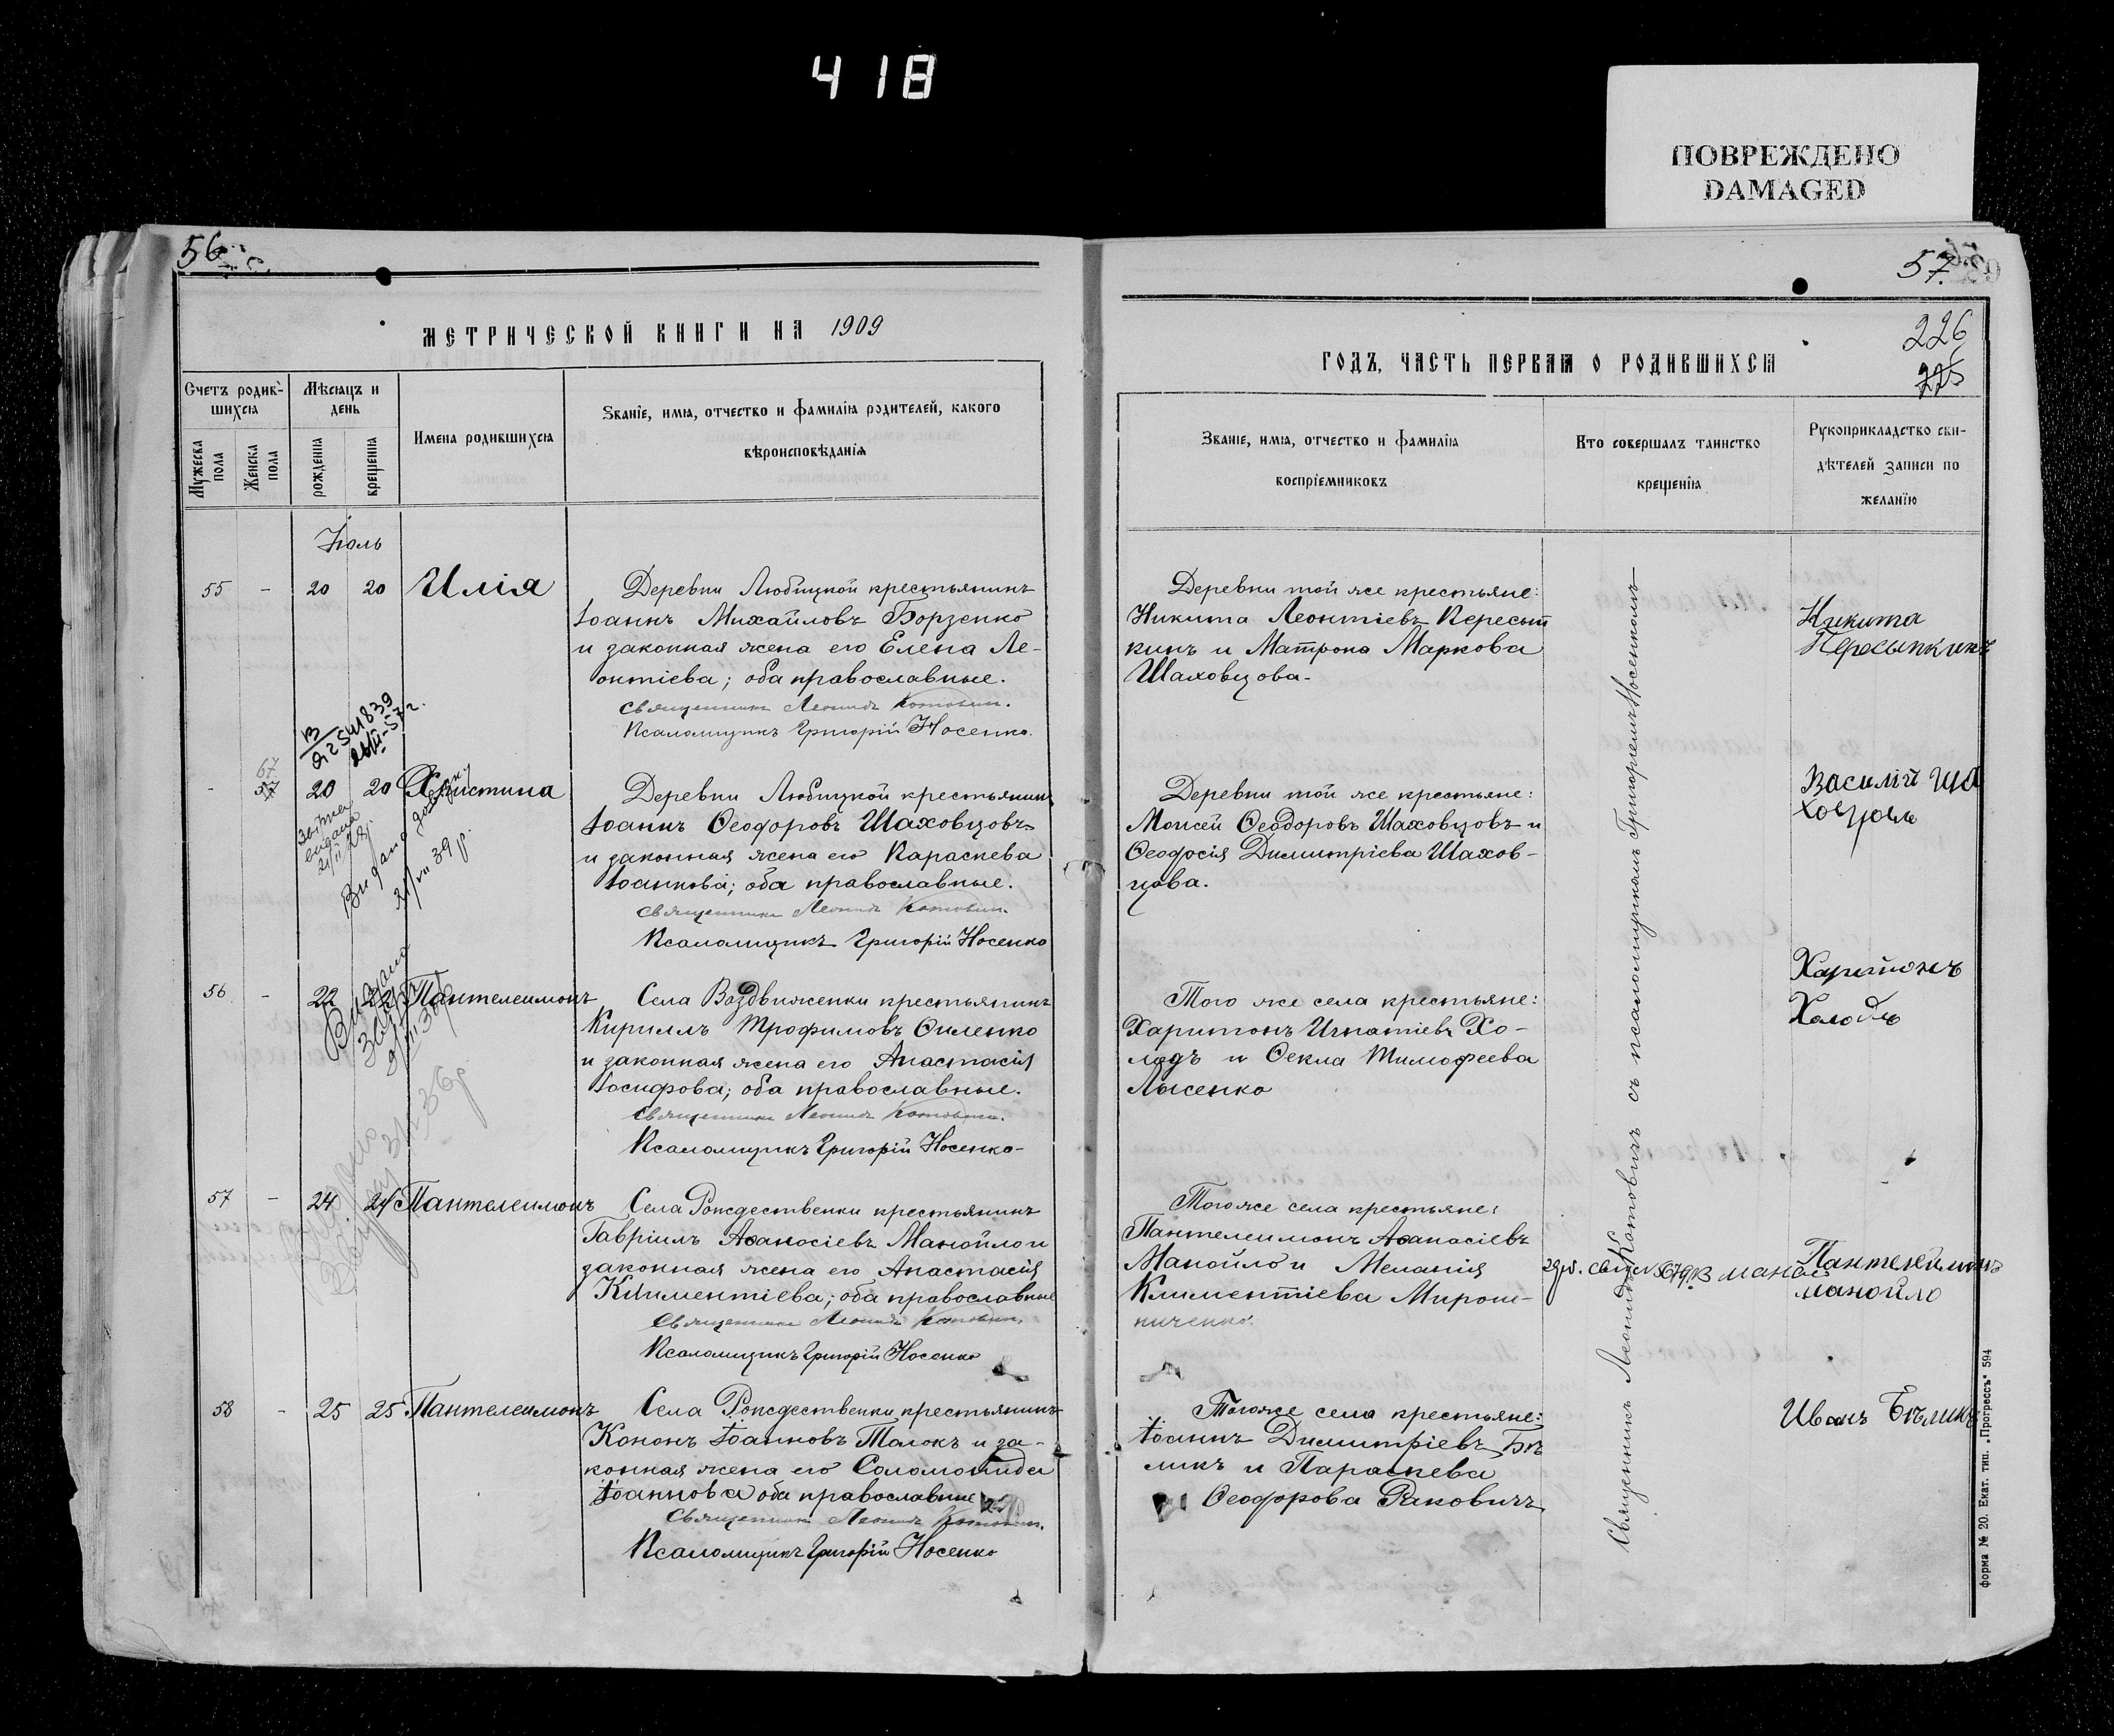 418
ПОВРЕЖДЕНО
DAMAGED
56
МЕТРИЧЕСКОЙ КНИГИ НА 1909
Счетъ родив-
шихся
Мѣсяцъ и
день
Мужеска
пола
Женска
пола
рожденія
крещенія
Имена родившихся
Званіе, имя, отчество и фамилія родителей, какого
вѣроисповѣданія
Іюль
55 - 20 20 Илія
Деревни Любицкой крестьянинъ
Іоаннъ Михайловъ Борзенко
и законная жена его Елена Ле-
онтіева; оба православные.
Священникъ Леонидъ Котовичъ.
Псаломщикъ Григорій Носенко.
67
- 57 20 20 Христина
Деревни Любицкой крестьянинъ
Іоаннъ Ѳеодоровъ Шаховцовъ
и законная жена его Параскева
Іоаннова; оба православные.
Священникъ Леонидъ Котовичъ.
Псаломщикъ Григорій Носенко
56 - 22 22 Пантелеимонъ
Села Воздвиженки крестьянинъ
Кириллъ Трофимовъ Ѳиленко
и законная жена его Анастасія
Іосифова; оба православные.
Священникъ Леонидъ Котовичъ.
Псаломщикъ Григорій Носенко-
57 - 24 24 Пантелеимонъ
Села Рождественки крестьянинъ
Гавріилъ Аѳанасіевъ Манойло и
законная жена его Анастасія
Климентіева; оба православные
Священникъ Леонидъ Котовичъ.
Псаломщикъ Григорій Носенко
58 - 25 25 Пантелеимонъ
Села Рождественки крестьянинъ
Кононъ Іоанновъ Талокъ и за-
конная жена его Соломонида
Іоаннова оба православные
Священникъ Леонидъ Котовичъ.
Псаломщикъ Григорій Носенко
57.
226
225
ГОДЪ, ЧАСТЬ ПЕРВАЯ О РОДИВШИХСЯ
Званіе, имя, отчество и фамилія
воспріемниковъ
Кто совершалъ таинство
крещенія
Рукоприкладство сви-
дѣтелей записи по
желанію
Деревни той же крестьяне:
Никита Леонтіевъ Пересып
кинъ и Матрона Маркова
Шаховцова-
Никита
Пересыпкинъ
Деревни той же крестьяне:
Моисей Ѳеодоровъ Шаховцовъ и
Ѳеодосія Димитріева Шахов-
цова.
Василій Ша
Того же села крестьяне:
Харитонъ Игнатіевъ Хо-
лодъ и Ѳекла Тимофеева
Лысенко
Харитонъ
Холодъ
Того же села крестьяне:
Пантелеимонъ Аѳанасіевъ
Манойло и Меланія
Климентіева Мирош-
ниченко.
Пантелеймонъ
манойло
Того же села крестьяне:
Іоаннъ Димитріевъ Бѣ
ликъ и Параскева
Ѳеодорова Раковичъ
Иванъ Бѣликъ
Священникъ Леонидъ Котовичъ съ псаломщикомъ Григоріемъ Носенкомъ
форма № 20. Екат. тип. „Прогрессъ" 594